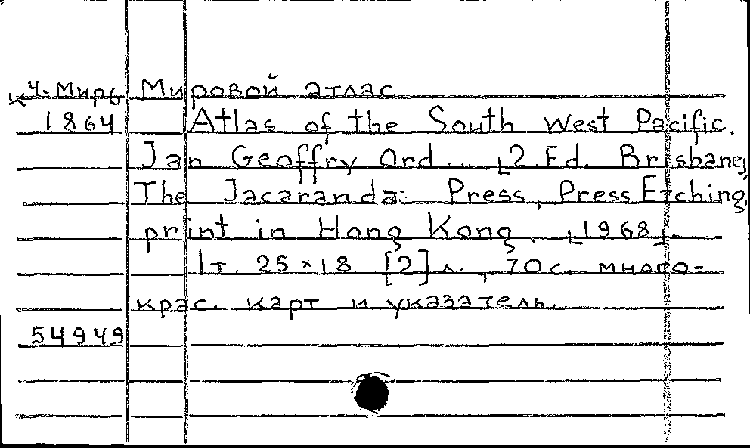 к4.Миръ Мировой атлас
1864 Atlas of the South West Pacific.
Jan Geoffry Ord... [2.Ed. Brisbang
The Jacaranda: Press, Press Etching,
print in Hong Kong. [1968].
1т. 25×18 [2] л., 70с. много=
крас. карт и указатель.
54949